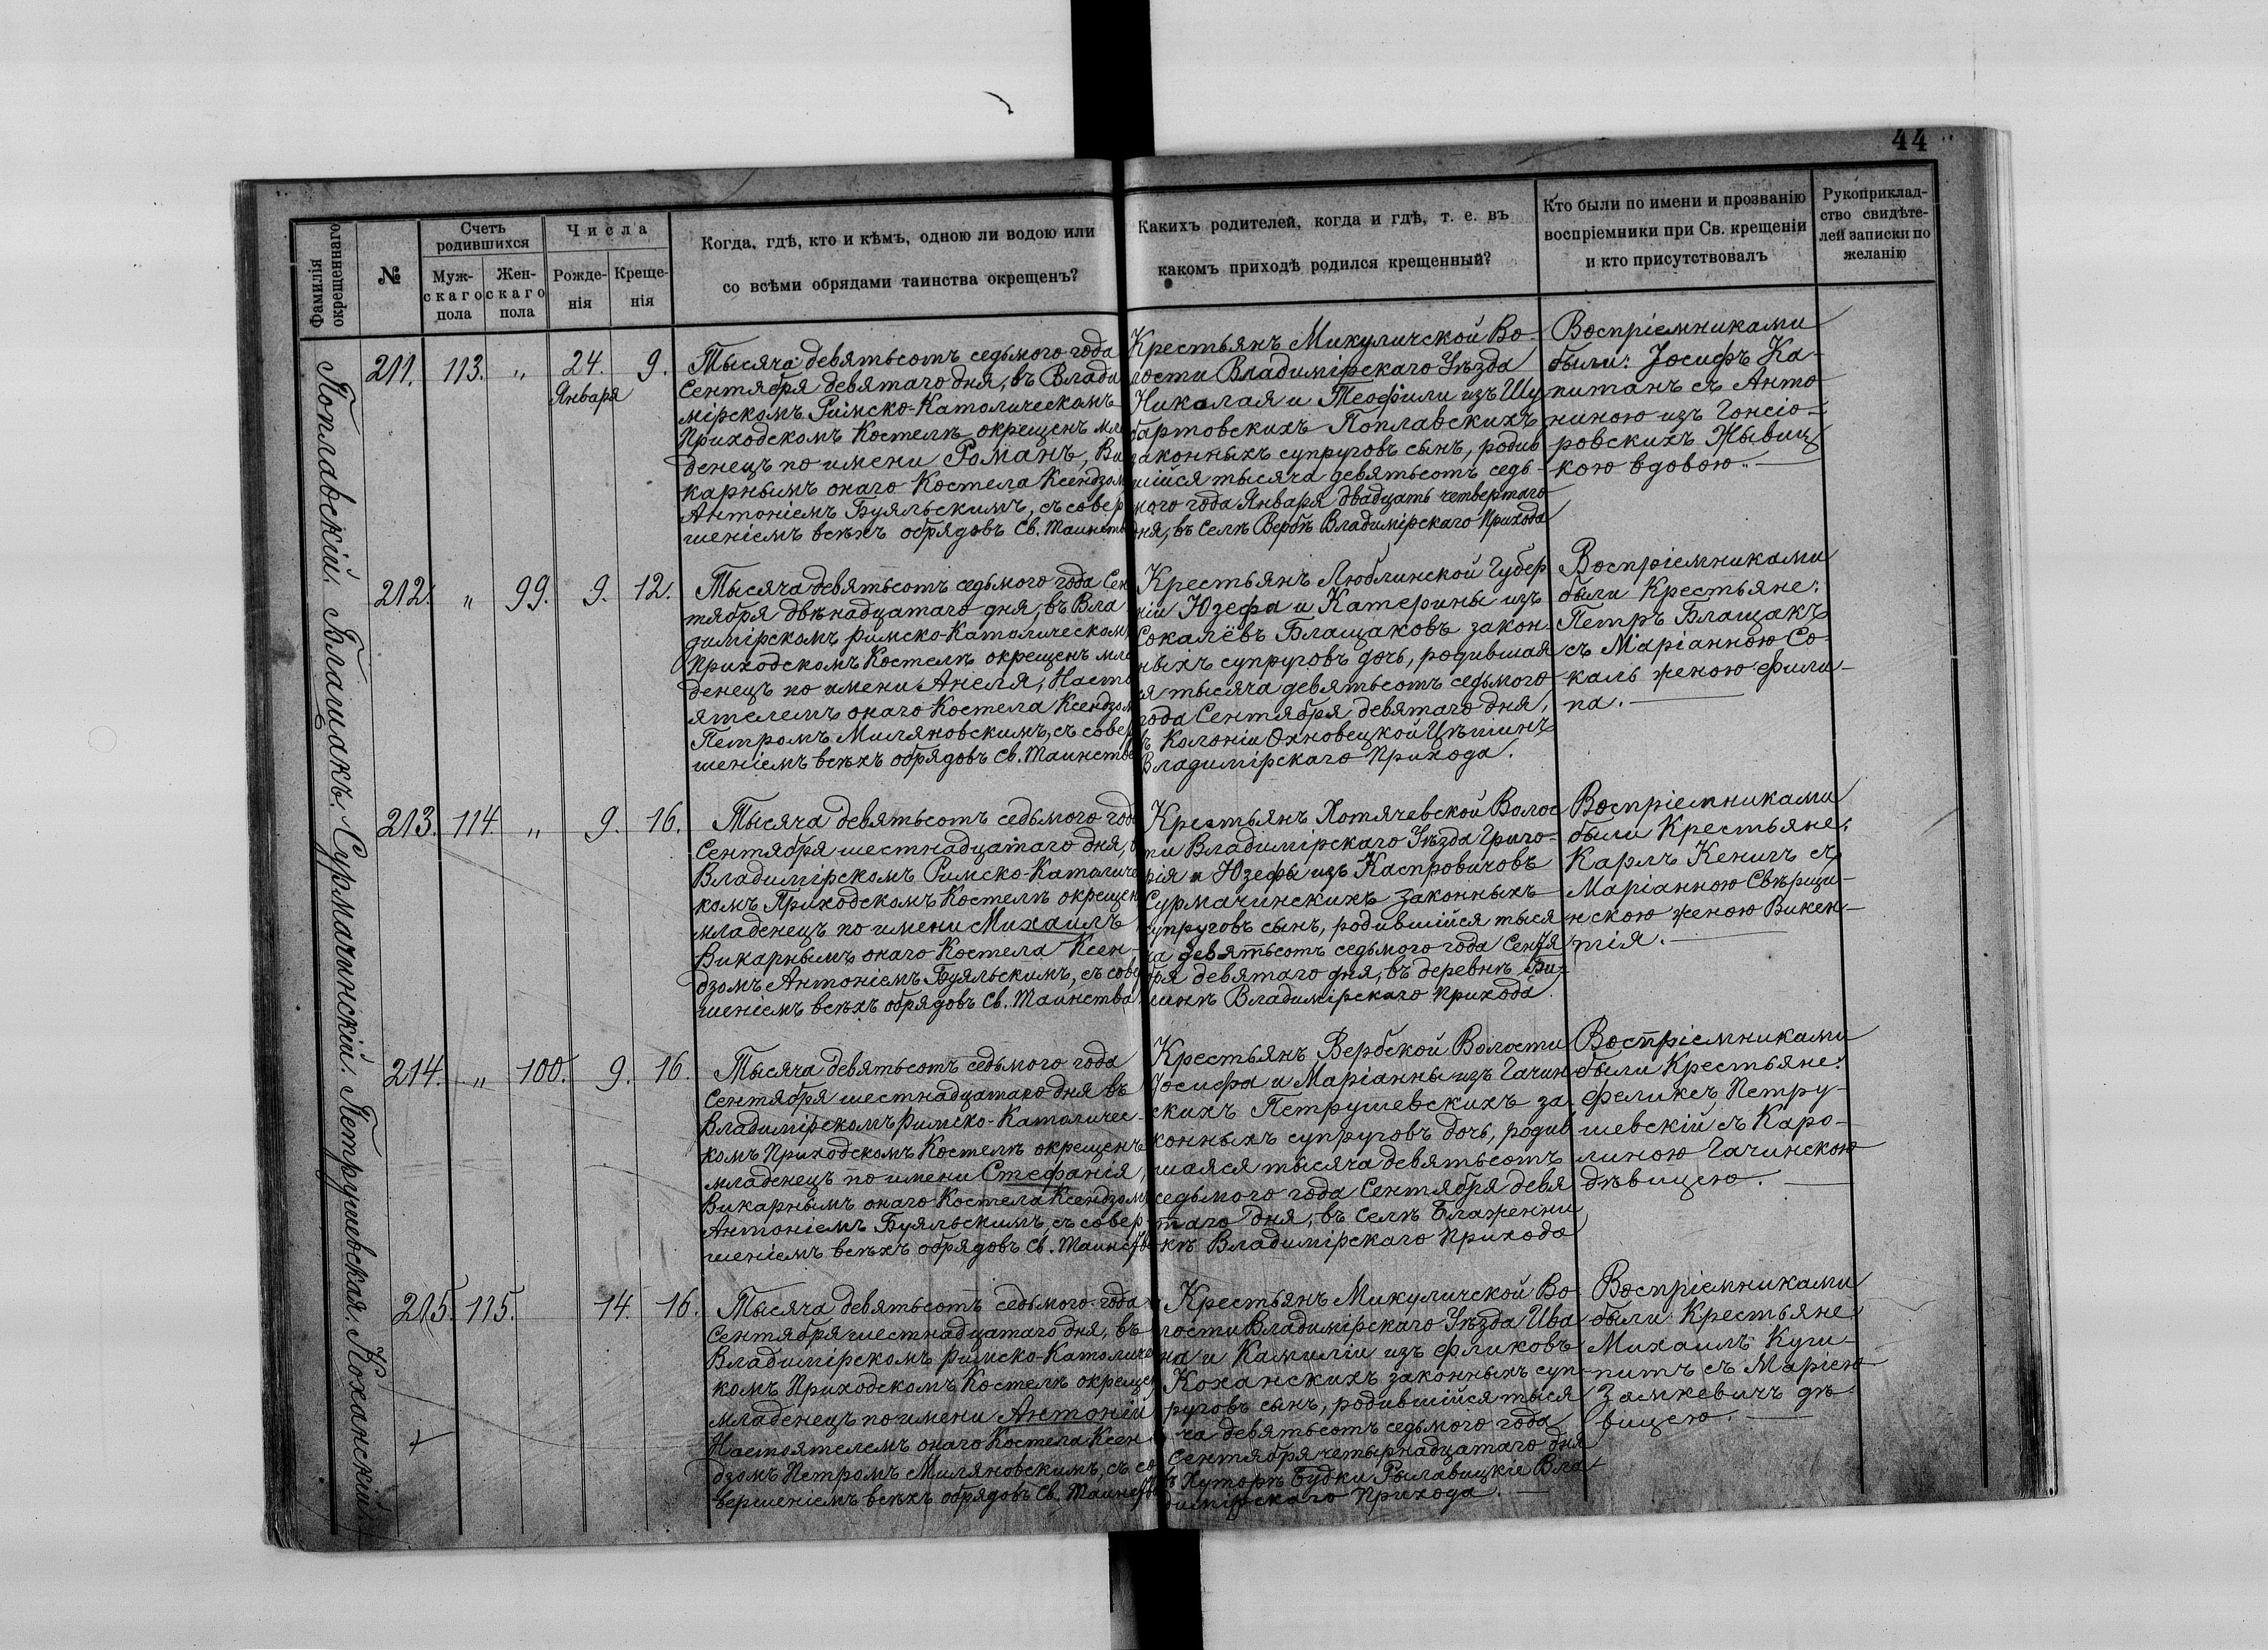 44
Фамилія
окрещеннаго
№
Счетъ
родившихся
Муж-
скаго
пола
Жен-
скаго
пола
Числа
Рожде-
нія
Креще-
нія
Когда, гдѣ, кто и кѣмъ, одною ли водою или
со всѣми обрядами таинства окрещенъ?
Какихъ родителей, когда и гдѣ, т. е. въ
какомъ приходѣ родился крещенный?
Кто были по имени и прозванію
воспріемники при Св. крещеніи
и кто присутствовалъ
Рукоприклад-
ство свидѣте-
лей записки по
желанію
Поплавскій. Блащакъ. Сурмачинскій. Петрушевская. Коханскій.
211. 113. „ 24. 9.
Января
Тысяча девятьсотъ седьмого года
Сентября девятаго дня, въ Влади
мірскомъ Римско-Католическомъ
Приходскомъ Костелѣ окрещенъ мла
денецъ по имени Романъ, Ви
карнымъ онаго Костела Ксендзом
Антоніемъ Буяльскимъ, съ совер
шеніемъ всѣхъ обрядовъ Св. Таинств
Крестьянъ Микуличской Во-
лости Владимірскаго Уѣзда
Николая и Теофили изъ Шу
бартовскихъ Поплавскихъ
законныхъ супруговъ сынъ, родив
шійся тысяча девятьсотъ седь-
мого года Января двадцать четвертаго
дня, въ селѣ Вербѣ Владимірскаго Прихода
Воспріемниками
были: Іосифъ Ка-
питанъ съ Анто
ниною изъ Гонсіо-
ровскихъ Жывиц
кою вдовою.. —
212. „ 99. 9. 12.
Тысяча девятьсотъ седьмого года Сен
тября двѣнадцатаго дня, въ Вла
димірскомъ Римско-Католическом
Приходскомъ Костелѣ окрещенъ мла
денецъ по имени Анеля, Насто
ятелемъ онаго Костела Ксендзом
Петромъ Миляновскимъ, съ совер
шеніемъ всѣхъ обрядовъ Св. Таинства
Крестьянъ Люблинской Губер
ніи Юзефа и Катерины изъ
Сокалёвъ Блащаковъ закон-
ныхъ супруговъ дочь, родившая
ся тысяча девятьсотъ седьмого
года Сентября девятаго дня,
въ Колоніи Охновецкой Цѣшинъ
Владимірскаго Прихода.
Воспріемниками
были Крестьяне:
Петръ Блащакъ
съ Маріанною Со-
каль женою Фили-
па. —
213. 114. „ 9. 16.
Тысяча девятьсотъ седьмого года
Сентября шестнадцатаго дня, въ
Владимірскомъ Римско-Католичес
комъ Приходскомъ Костелѣ окрещен
младенецъ по имени Михаилъ
Викарнымъ онаго Костела Ксен-
дзомъ Антоніемъ Буяльскимъ, съ совер
шеніемъ всѣхъ обрядовъ Св. Таинства
Крестьянъ Хотячевской Волос
ти Владимірскаго Уѣзда Григо-
рія и Юзефы изъ Каспровичовъ
Сурмачинскихъ законныхъ
супруговъ сынъ, родившійся тыся
ча девятьсотъ седьмого года Сентя
бря девятаго дня, въ деревнѣ Би-
шнѣ Владимірскаго Прихода.
Воспріемниками
были Крестьяне:
Карлъ Кенигъ съ
Маріанною Свѣрщи-
нскою женою Викен-
тія. —
214. „ 100. 9. 16.
Тысяча девятьсотъ седьмого года
Сентября шестнадцатаго дня въ
Владимірскомъ Римско-Католичес-
комъ Приходскомъ Костелѣ окрещенъ
младенецъ по имени Стефанія,
Викарнымъ онаго Костела Ксендзом
Антоніемъ Буяльскимъ, съ совер-
шеніемъ всѣхъ обрядовъ Св. Таинства
Крестьянъ Вербской Волости
Іосифа и Маріанны изъ Гачин
скихъ Петрушевскихъ за-
конныхъ супруговъ дочь, родив
шаяся тысяча девятьсотъ
седьмого года Сентября девя
таго дня, въ селѣ Блаженни
кѣ Владимірскаго Прихода
Воспріемниками
были Крестьяне:
Феликсъ Петру-
шевскій съ Каро-
линою Гачинскою
дѣвицею. —
215. 115. 14. 16.
Тысяча девятьсотъ седьмого года
Сентября шестнадцатаго дня, въ
Владимірскомъ Римско-Католичес
комъ Приходскомъ Костелѣ окрещен
младенецъ по имени Антоній
Настоятелемъ онаго Костела Ксен
дзомъ Петромъ Миляновскимъ, съ со
вершеніемъ всѣхъ обрядовъ Св. Таинства
Крестьянъ Микуличской Во-
лости Владимірскаго Уѣзда Ива
на и Камиліи изъ Фликовъ
Коханскихъ законныхъ суп-
руговъ сынъ, родившійся тыся
ча девятьсотъ седьмого года
Сентября четырнадцатаго дня
въ Хуторѣ Будки Рылавицкіе Вла
димірскаго Прихода. —
Воспріемниками
были Крестьяне:
Михаилъ Куги-
питъ съ Маріею
Замкевичъ дѣ-
вицею. —